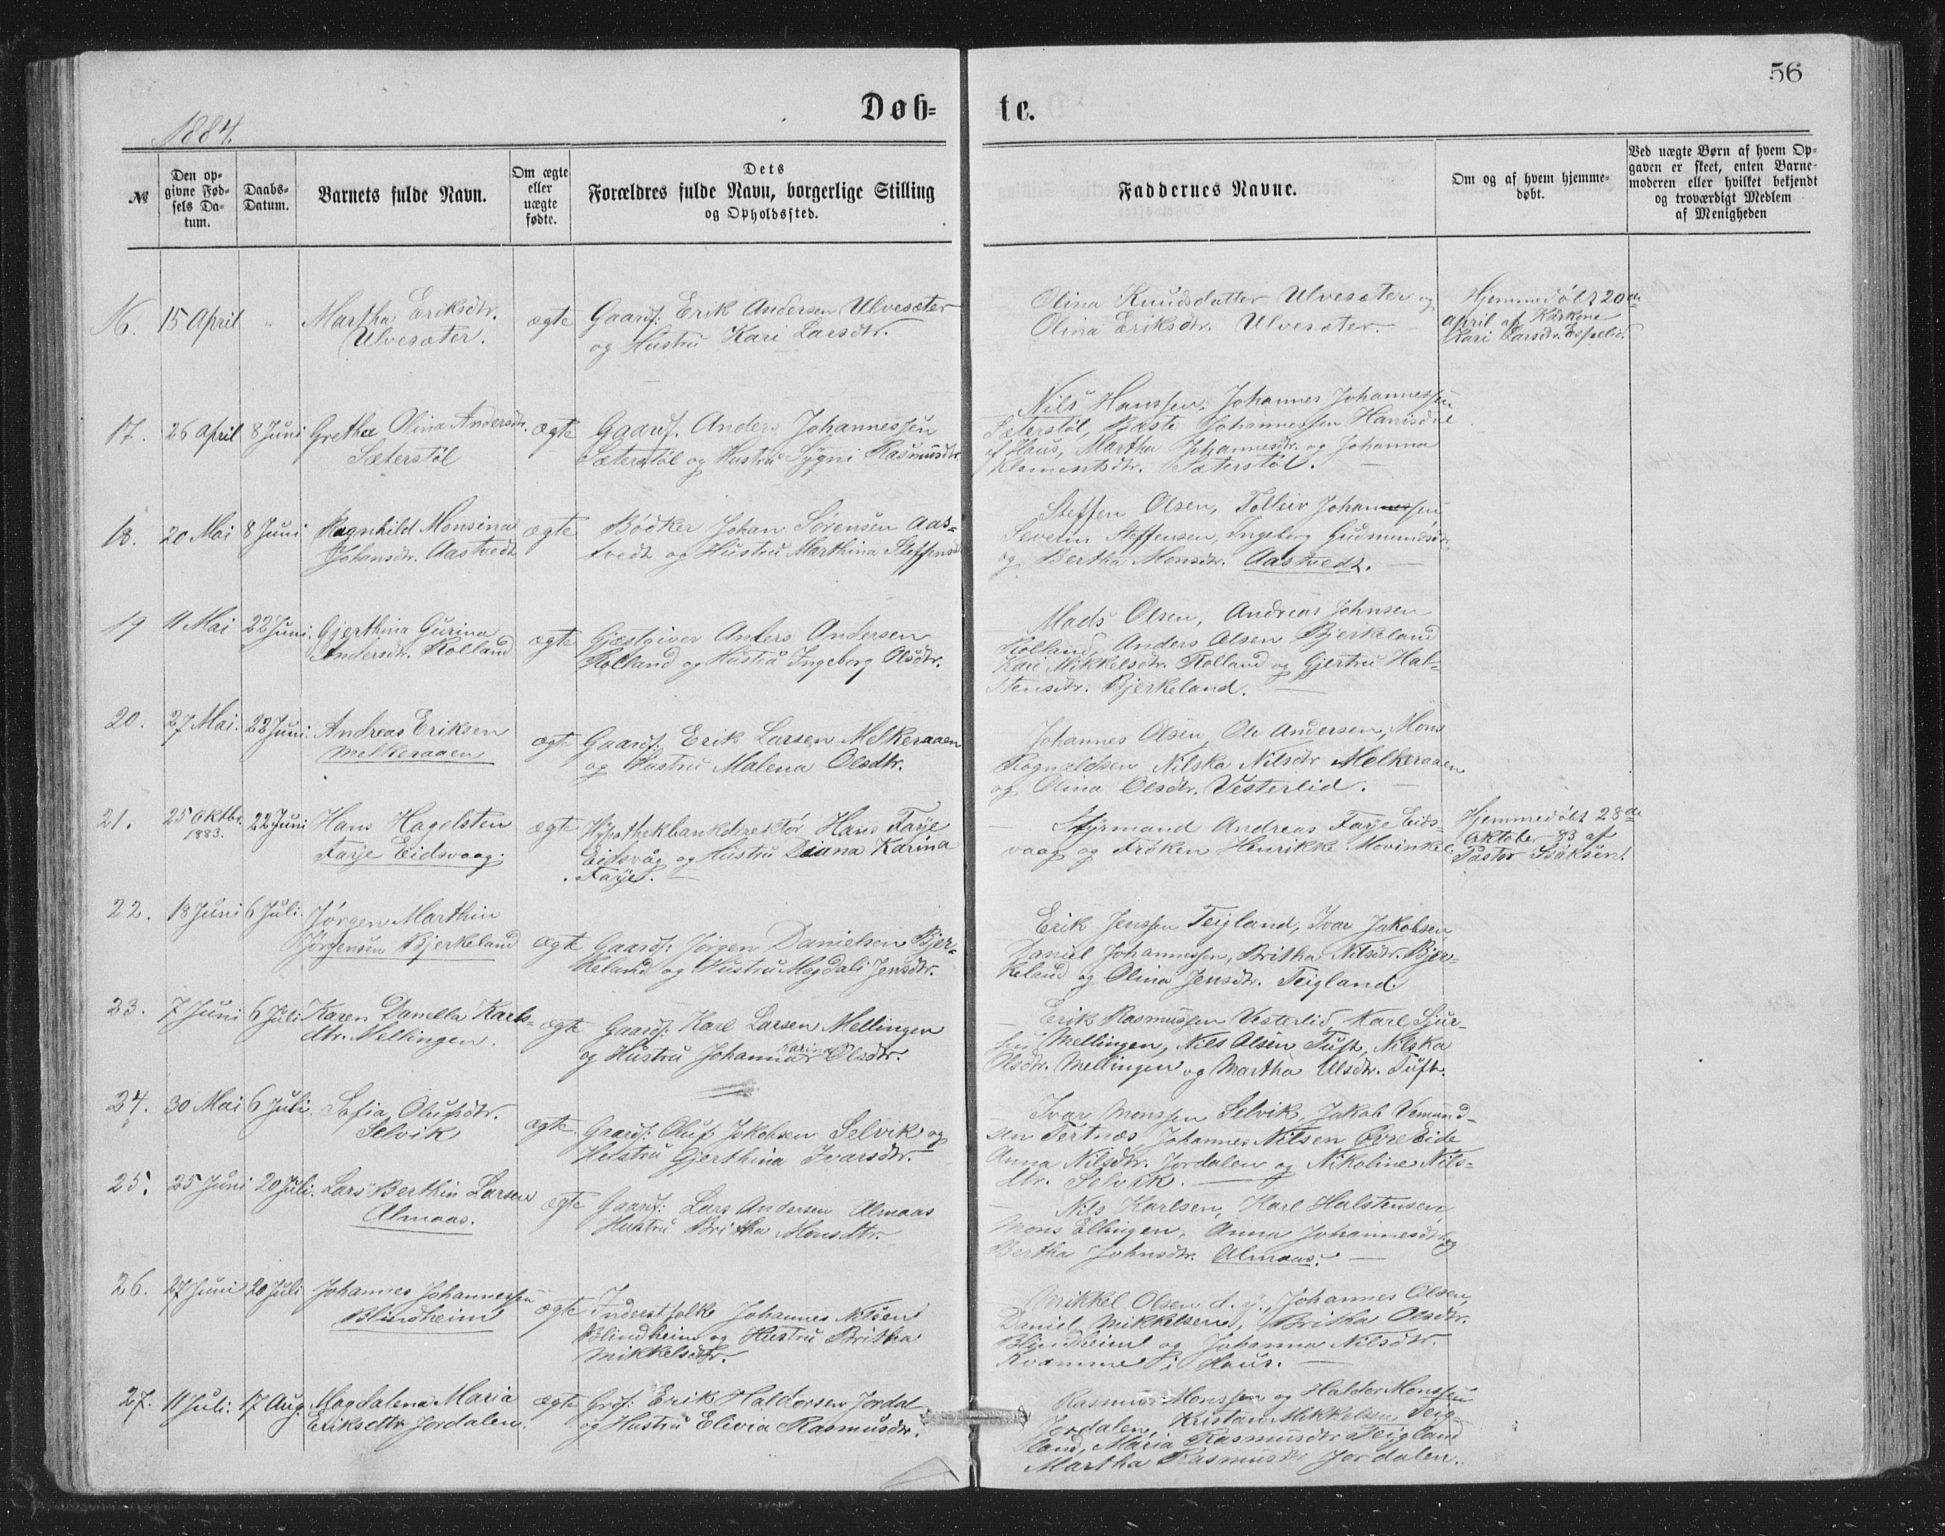 56
Døb= te.
1884.
№
Den op=
givne Fød=
sels Da=
tum.
Daabs=
Datum.
Barnets fulde Navn.
Om ægte
eller
uægte
fødte.
Dets
Forældres fulde Navn, borgerlige Stilling
og Opholdssted.
Faddernes Navne.
Om og af hvem hjemme=
døbt.
Ved uægte Børn af hvem Op=
gaven er skeet, enten Barne=
moderen eller hvilket bekjendt
og troværdigt Medlem
af Menigheden
16. 15 April " Martha Eriksdtr.
Ulvesæter.
ægte
Gaardf. Erik Andersen Ulvesæter
og Hustru Kari Larsdtr.
Olina Knudsdatter Ulvesæter og
Olina Eriksdtr. Ulvesæter. —
Hjemmedøbt 20de
april af
Kari Larsdtr. Espelid.
17. 26 April 8 Juni Grethe Olina Andersdtr.
Sæterstøl
ægte
Gaardf. Anders Johannessen
Sæterstøl og Hustru Sygni Rasmusdtr.
Nils Hanssen, Johannes Johannessen
Sæterstøl, Baste Johannessen
af Haus, Martha Johannesdtr. og Johanna
Klementsdtr. Sæterstøl. —
18. 20 Mai 8 Juni Ragnhild Monsina
Johansdtr. Aastvedt
ægte
Bødker Johan Sørensen Aas=
tvedt og Hustru Marthina Steffensd
Steffen Olsen, Tolleiv Johannessen
Severin Steffensen, Ingeborg Gudmundsdtr.
og Bertha Monsdtr. Aastvedt. —
19 11 Mai 22 Juni. Gjerthina Gurina
Andersdtr. Rolland
ægte
Gjæstgiver Anders Andersen
Rolland og Hustru Ingeborg Olsdtr.
Mads Olsen, Andreas Johnsen
Rolland, Anders Olsen Bjerkeland
Kari Mikkelsdtr. Rolland og Gjertru Hal=
stensdtr. Bjerkeland. —
20. 27 Mai. 22 Juni. Andreas Eriksen
Melkeraaen
ægte
Gaardf. Erik Larsen Melkeraaen
og Hustru Malena Olsdtr.
Johannes Olsen, Ole Andersen, Mons
Rognaldsen Nilska Nilsdtr Melkeraaen
og Olina Olsdtr. Vesterlid. —
21. 25 Oktbr.
1883.
22 Juni Hans Hagelsten
Faye Eidsvaag.
ægte
Hypothekbankdirektør Hans Faye
Eidsvåg og Hustru Diana Karina
Faye. —
— Styrmand Andreas Faye Eids=
vaag og Frøken Henrikke Movinkel.
Hjemmedøbt 28de
Oktober 83 af
Pastor Isaksen.
22. 18 Juni 6 Juli. Jørgen Marthin
Jørgensen Bjerkeland
ægte
Gaardf: Jørgen Danielsen Bjer=
keland og Hustru Magdali Jensdtr.
Erik Jenssen Teigland, Ivar Jakobsen
Daniel Johannessen, Britha Nilsdtr. Bjer=
keland og Olina Jensdtr. Teigland.
23. 7 Juni 6 Juli Karen Daniella Karls=
dtr. Mellingen.
ægte
Gaardf: Karl Larsen Mellingen
og Hustru Johanna Karina Olsdtr.
— Erik Rasmussen Vesterlid, Karl Sjur=
sen Mellingen, Nils Olsen Tuft, Nilska
Olsdtr. Mellingen og Martha Olsdtr. Tuft.
24. 30 Mai 6 Juli. Sofia Olufsdtr.
Selvik
ægte
Gaardf: Oluf Jakobsen Selvik og
Hustru Gjerthina Ivarsdtr.
— Ivar Monssen Selvik, Jakob Vemund=
sen Tertnæs, Johannes Nilsen Øvre Eide
Anna Nilsdtr. Jordalen og Nikoline Nils=
dtr. Selvik. —
25. 25 Juni 20 Juli. Lars Berthin Larsen
Almaas.
ægte
Gaardf: Lars Andersen Almaas
Hustru Britha Monsdtr.
— Nils Karlsen, Karl Halstensen,
Mons Ellingen, Anna Johannesdtr og
Bertha Johnsdtr. Almaas. —
26. 27 Juni 20 Juli. Johannes Johannessen
Blindheim
ægte
Inderstfolke Johannes Nilsen
Blindheim og Hustru Britha
Mikkelsdtr.
Mikkel Olsen d. y., Johannes Olsen,
Daniel Mikkelsen, Britha Olsdtr.
Blindheim og Johanna Nilsdtr.
Kvamme i Haus. —
27. 11 Juli. 17 Aug. Magdalena Maria
Eriksdtr Jordalen.
ægte
Grdf: Erik Haldorsen Jordal
og Hustru Elivia Rasmusdtr.
Rasmus Monssen og Haldor Monssen
Jordalen, Kristian Mikkelsen Teig=
land, Maria Rasmusdtr Teigland
Martha Rasmusdtr Jordalen.